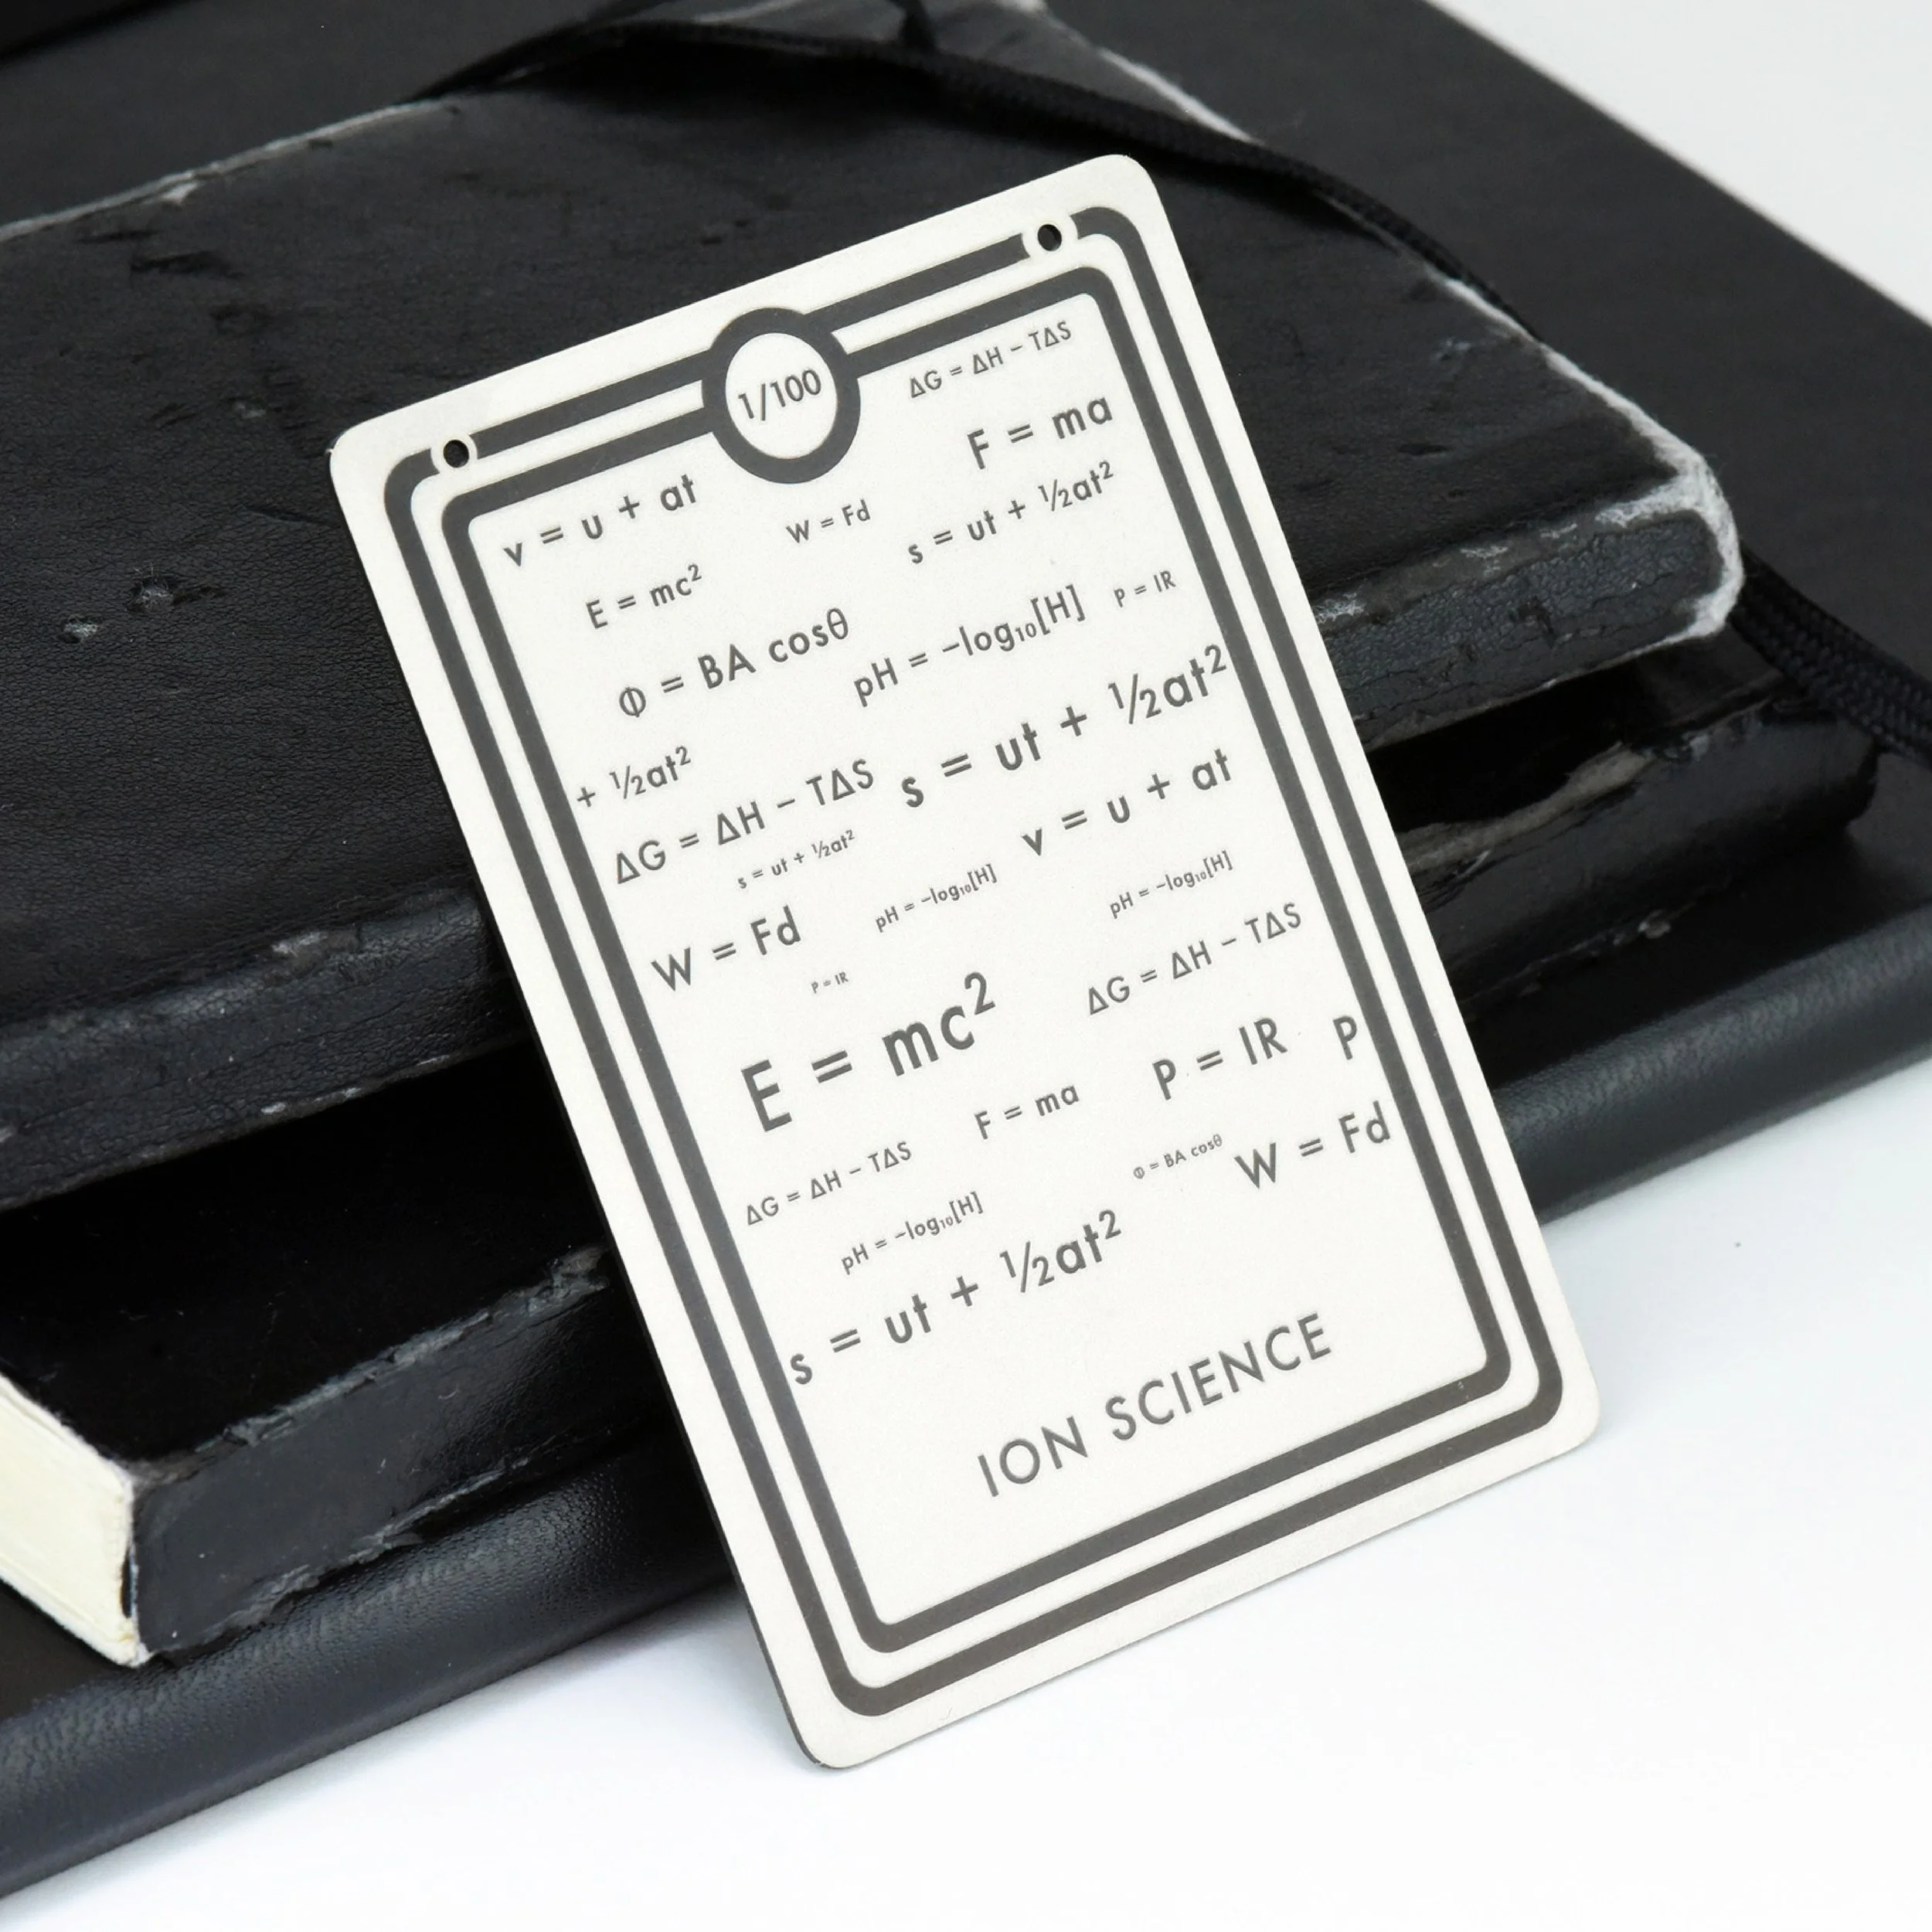 1/100
ΔG = ΔH − TΔS
F = ma
v = u + at
W = Fd
s = ut + ½at²
E = mc²
P = IR
Φ = BA cosθ
pH = −log₁₀[H]
s = ut + ½at²
+ ½at²
ΔG = ΔH − TΔS
v = u + at
s = ut + ½at²
pH = −log₁₀[H]
pH = −log₁₀[H]
W = Fd
P = IR
ΔG = ΔH − TΔS
E = mc²
P = IR
P
F = ma
W = Fd
Φ = BA cosθ
ΔG = ΔH − TΔS
pH = −log₁₀[H]
s = ut + ½at²
ION SCIENCE